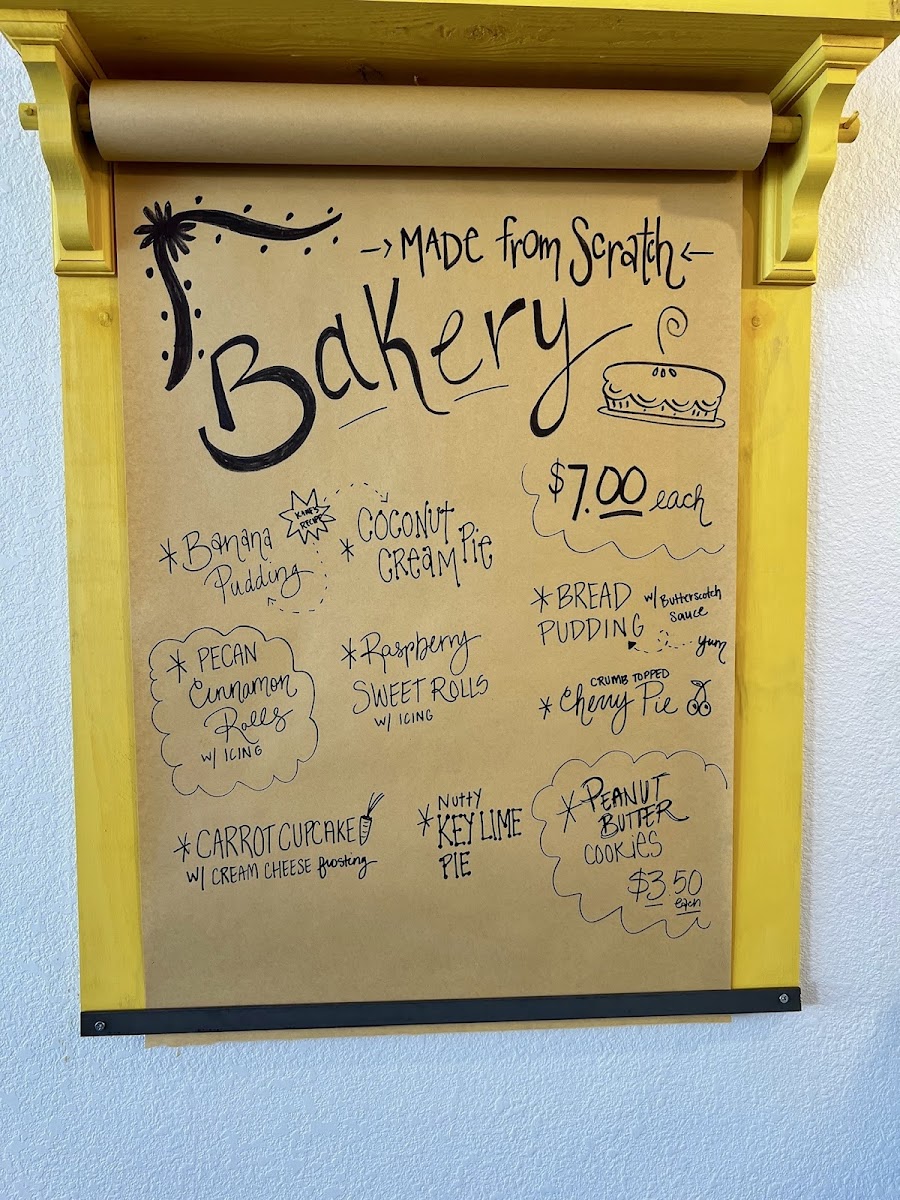 -> MADE from Scratch <-
Bakery
$7.00 each
* Banana
Pudding
RECIPE
* COCONUT
CREAM PIE
* BREAD
PUDDING
w/ Butterscotch
sauce
yum
* PECAN
Cinnamon
Rolls
w/ ICING
* Raspberry
SWEET ROLLS
w/ ICING
CRUMB TOPPED
* Cherry Pie
* CARROT CUPCAKE
w/ CREAM CHEESE frosting
* Nutty
KEY LIME
PIE
* PEANUT
BUTTER
COOKIES
$3.50
each